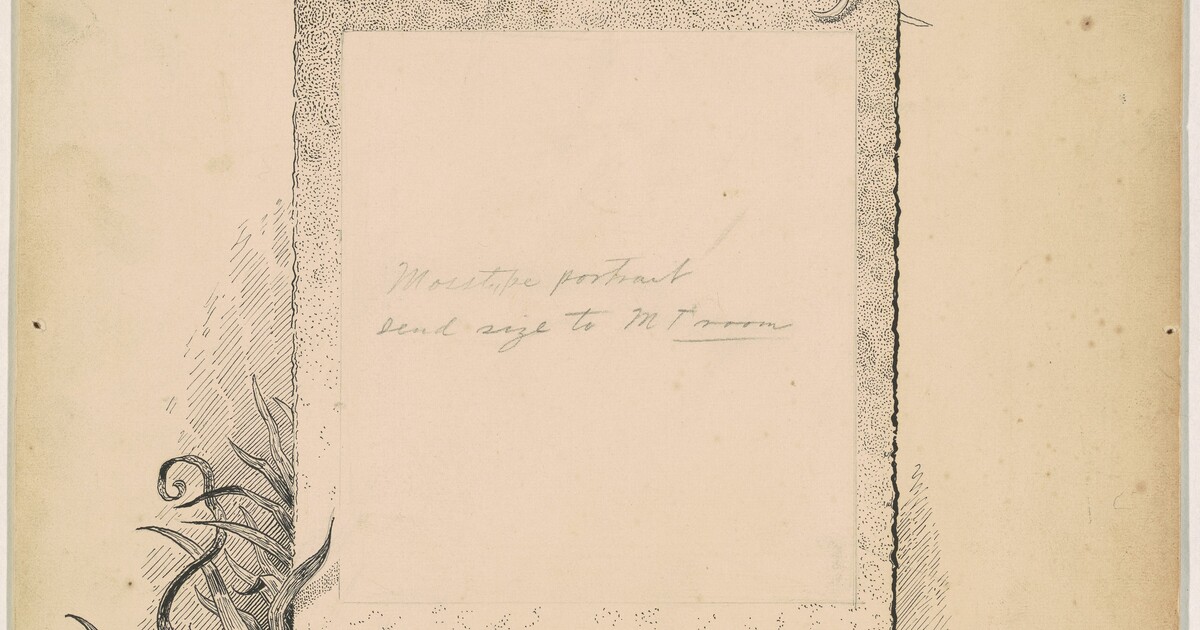 Mosstype portrait
send size to MT room